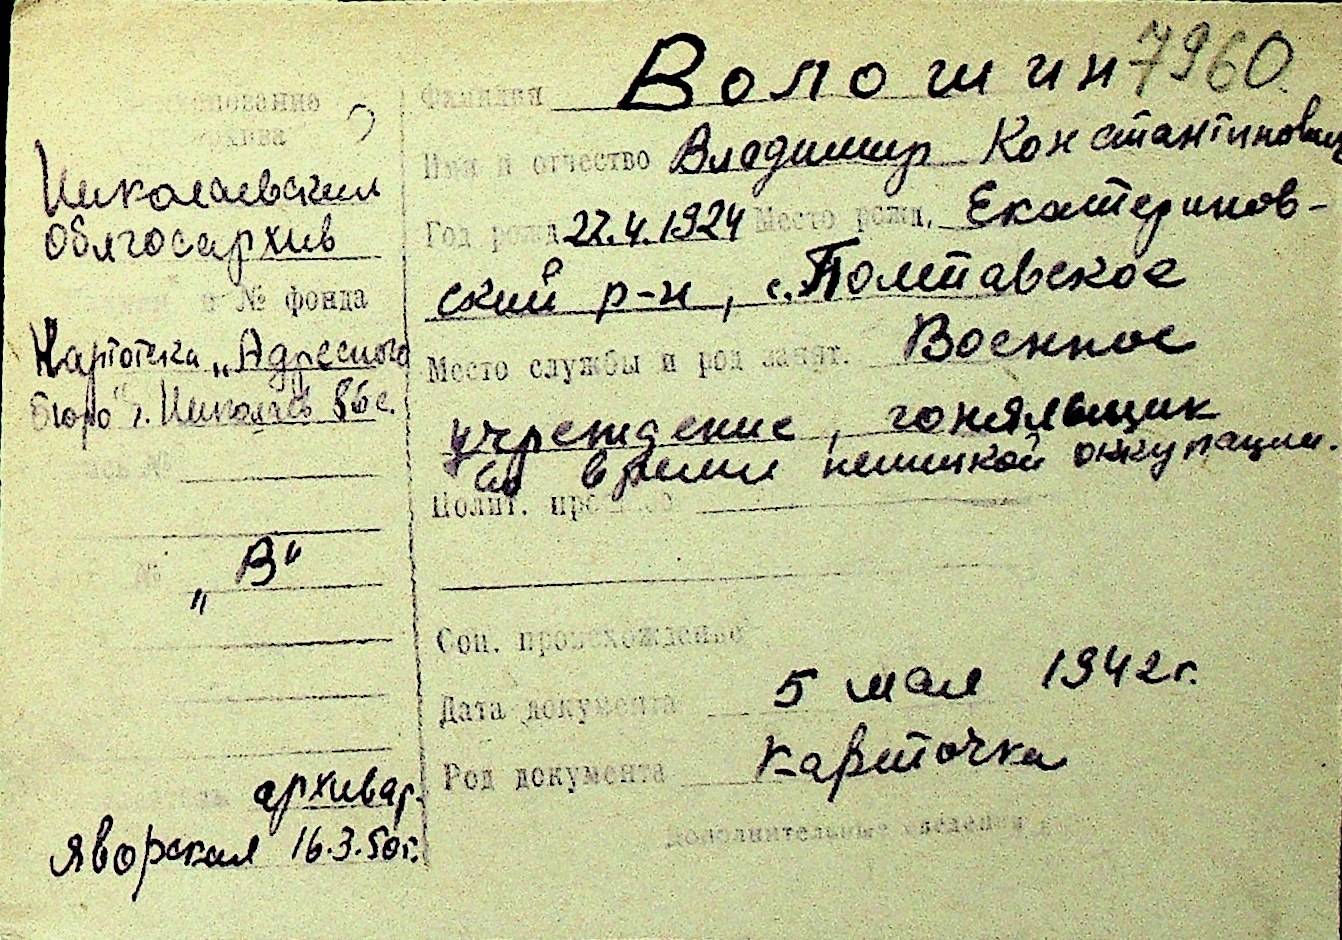 Волошин 7960
Фамилия
Имя и отчество Владимир Константинович
Год рожд 22.4.1924 Место рожд. Екатеринов-
ский р-н, с. Полтавское
Место службы и род занят. Военное
учреждение, гоняльщик
во время немецкой оккупации.
Полит.
Соц. происхождение
Дата документа 5 мая 1942г.
Род документа карточка
Дополнительные сведения
Николаевский
Облгосархив
и № фонда
Картотека „Адресного
бюро" г. Николаев
№
№ „В"
архивар.
Яворская 16.3.50г.